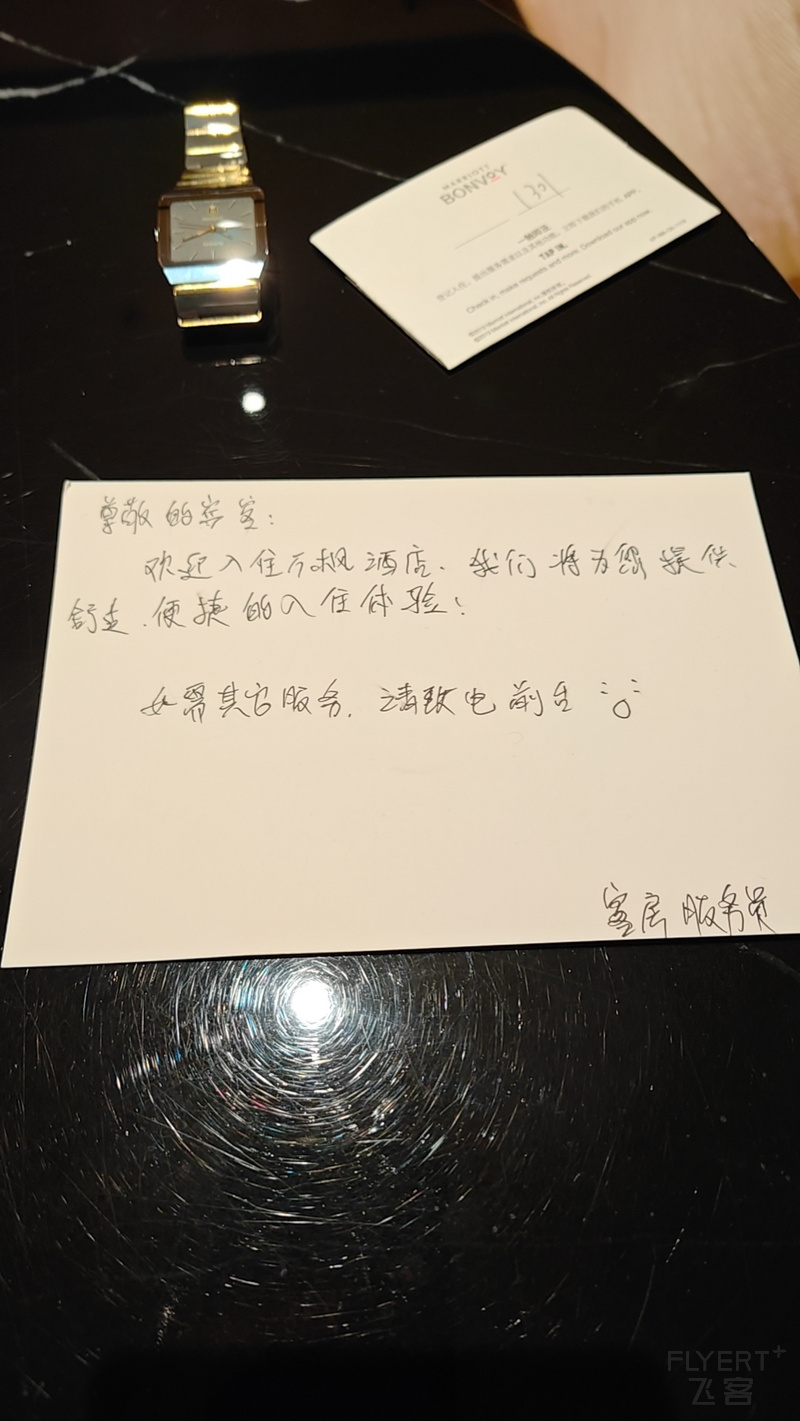 MARRIOTT
BONVOY
1301
一触即达
TAP IN.
Check in, make requests and more. Download our app now.
尊敬的宾客：
欢迎入住万枫酒店，我们将为您提供
舒适、便捷的入住体验！
如需其它服务，请致电前台
客房服务员
FLYERT+
飞客